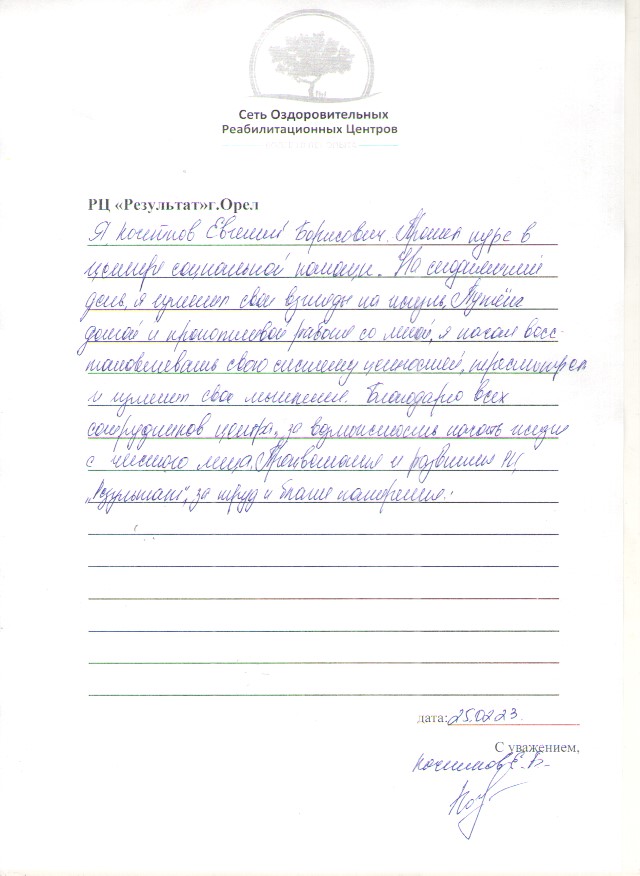 Сеть Оздоровительных
Реабилитационных Центров
РЦ «Результат»г.Орел
Я, Евгений Борисович. Прошел курс в
центре социальной помощи. На сегодняшний
день, я изменил свои взгляды на жизнь. Путём
долгой и кропотливой работе со мной, я начал восс-
танавливать свою систему ценностей, пересмотрел
и изменил свое мышление. Благодарю всех
сотрудников центра, за возможность начать жизнь
с чистого листа. Процветания и развития РЦ
„Результат“, за труд и благие намерения.
дата: 25.02.23.
С уважением,
Е. Б.